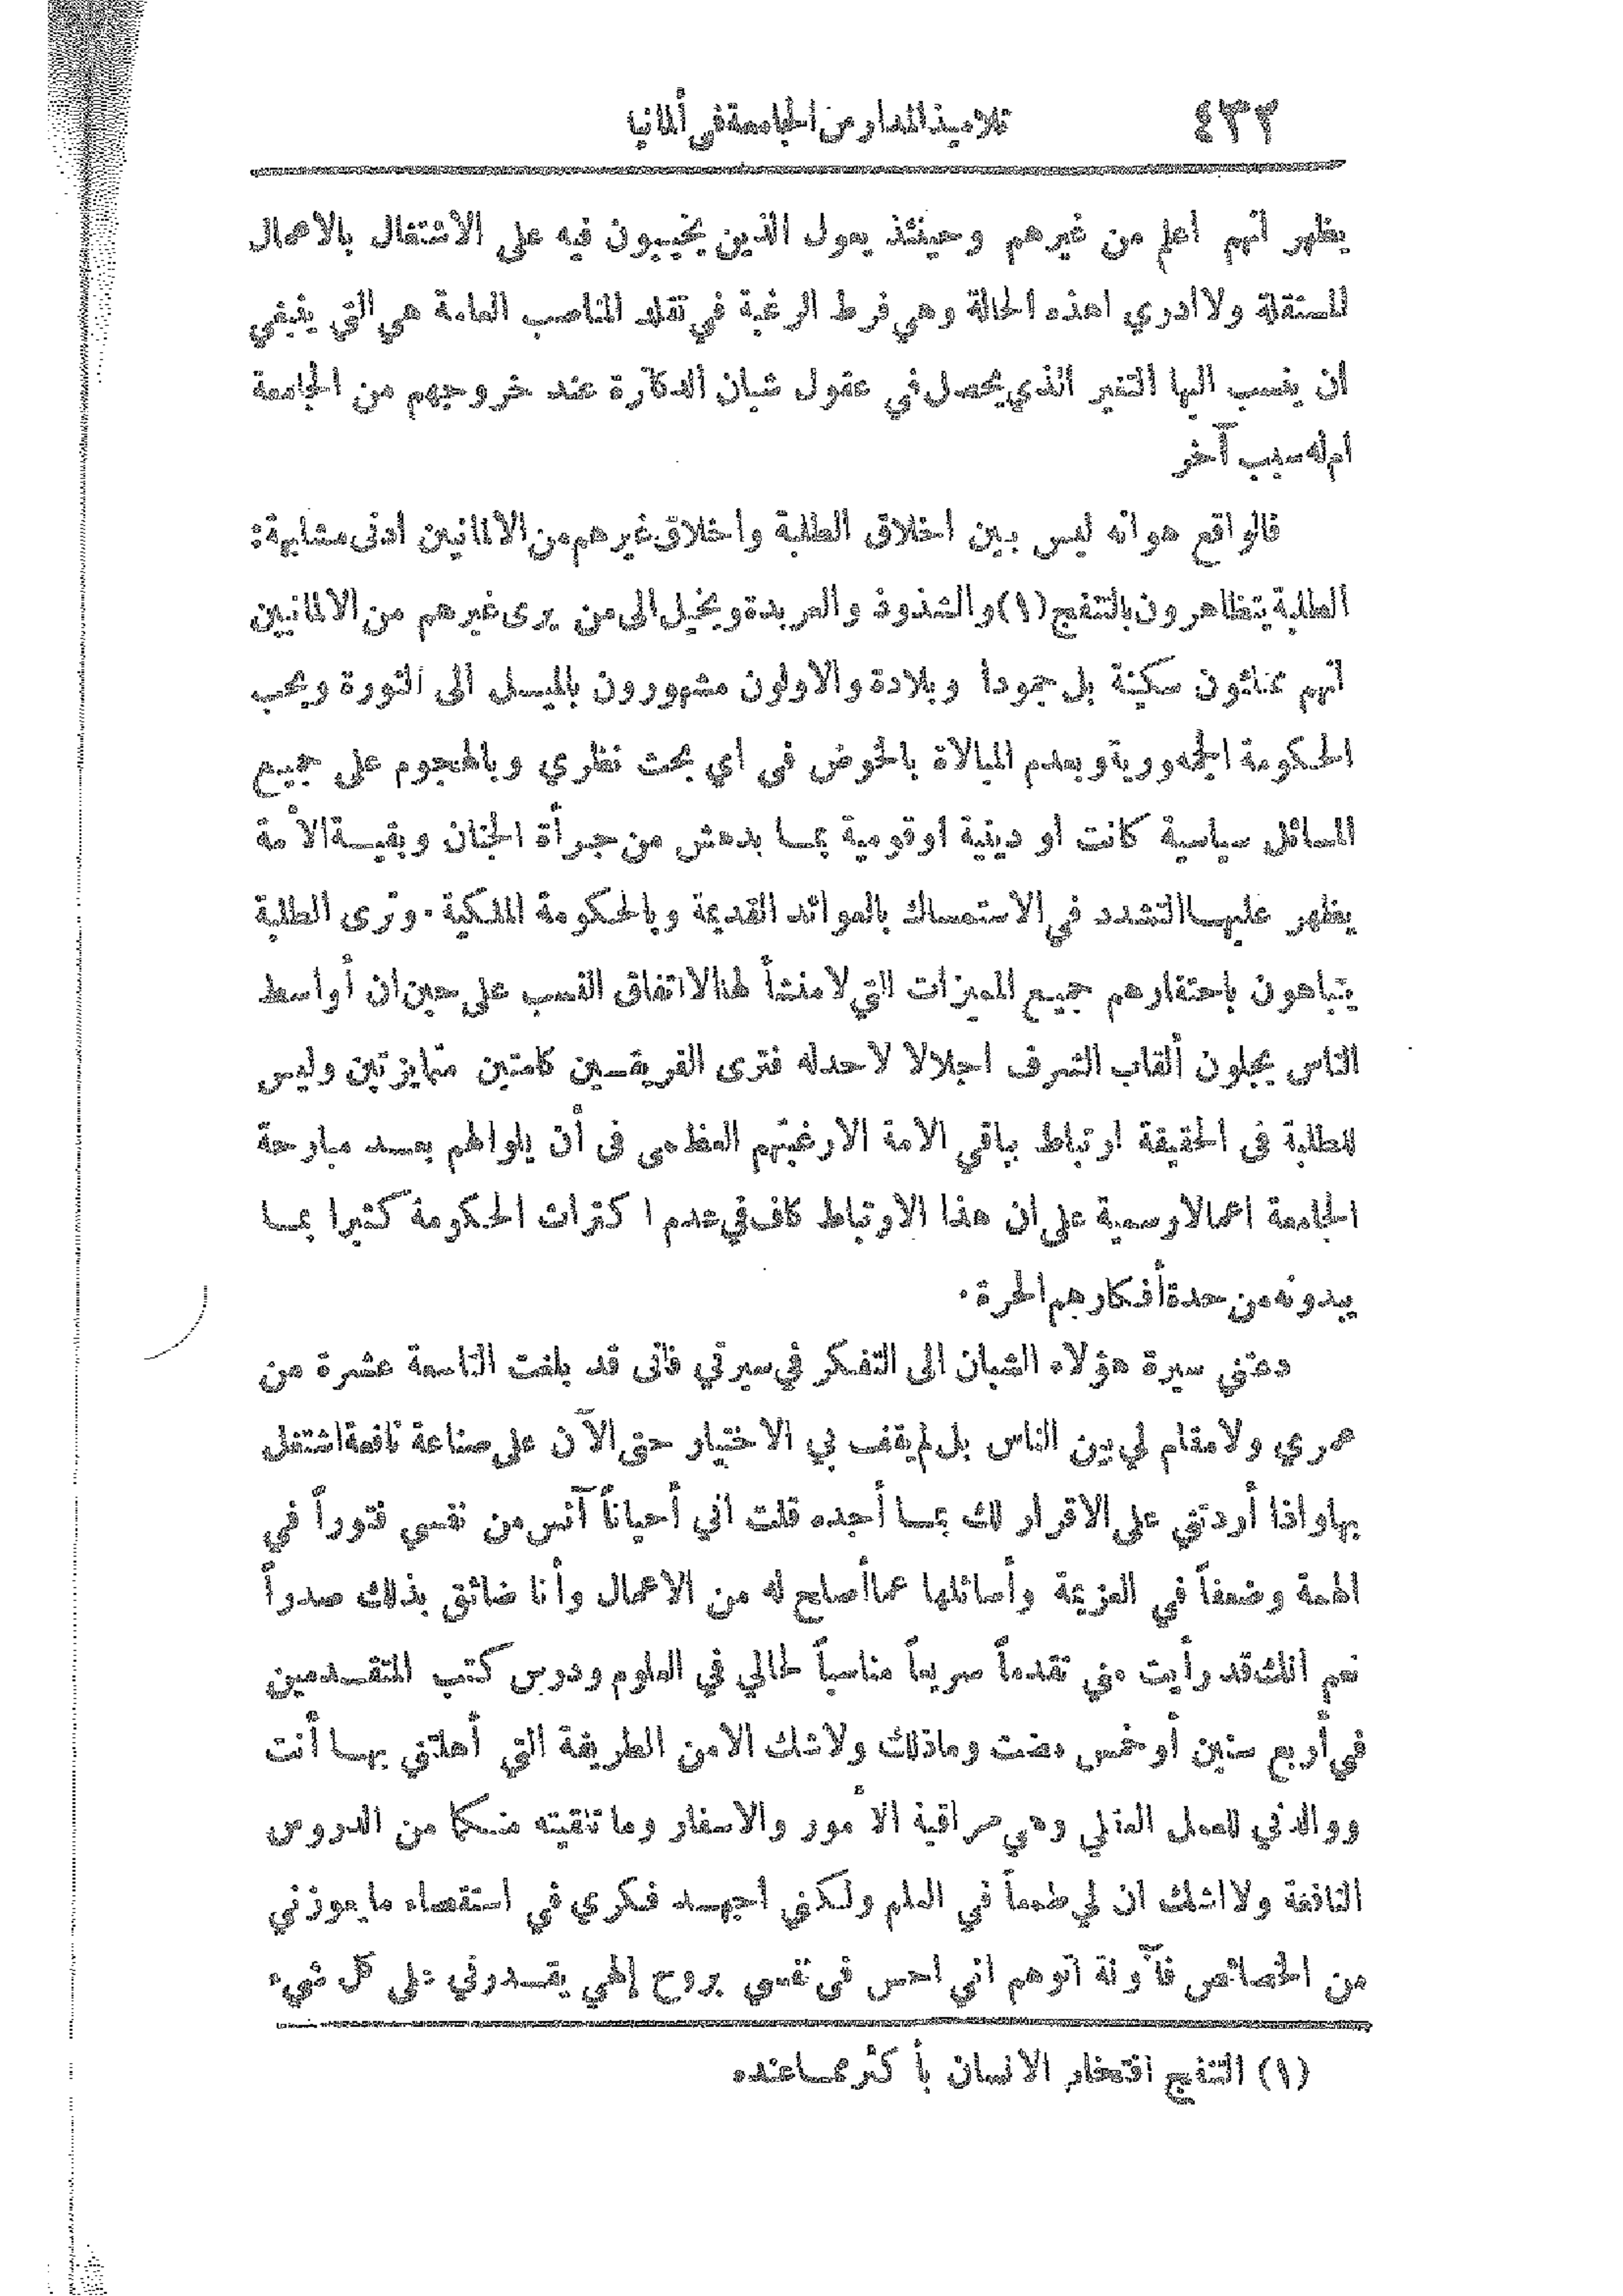 ٤٣٢ تلاميذ المدارس الجامعة في ألمانيا
يظهر انهم اعلم من غيرهم وحينئذ يعول الذين يخيبون فيه على الاشتغال بالاعمال
المستقلة ولا ادري اهذه الحالة وهي فرط الرغبة في تقلد المناصب العامة هي التي ينبغي
ان ينسب اليها التغير الذي يحصل في عقول شبان الدكاترة عند خروجهم من الجامعة
ام له سبب آخر
فالواقع هو انه ليس بين اخلاق الطلبة واخلاق غيرهم من الالمانيين ادنى مشابهة:
الطلبة يتظاهرون بالتنفج(١) والشذوذ والعربدة ويخيل الى من يرى غيرهم من الالمانيين
انهم ممتلئون سكينة بل جمودا وبلادة والاولون مشهورون بالميل الى الثورة وبحب
الحكومة الجمهورية وبعدم المبالاة بالخوض في اي بحث نظري وبالهجوم على جميع
المسائل سياسية كانت او دينية او قومية بما يدهش من جرأة الجنان وبقية الأمة
يظهر عليها التشدد في الاستمساك بالعوائد القديمة وبالحكومة الملكية. وترى الطلبة
يتباهون باحتقارهم جميع المميزات التي لا منشأ لها الا اتفاق النسب على حين ان أواسط
الناس يجلون ألقاب الشرف اجلالا لا حد له فترى الفريقين كامتين متمايزتين وليس
للطلبة في الحقيقة ارتباط بباقي الامة الا رغبتهم العظمى في أن يلوا لهم بعد مبارحة
الجامعة اعمالا رسمية على ان هذا الارتباط كاف في عدم اكتراث الحكومة كثيرا بما
يبدونه من حدة أفكارهم الحرة.
دعتني سيرة هؤلاء الشبان الى التفكر في سيرتي فاني قد بلغت التاسعة عشرة من
عمري ولا مقام لي بين الناس بل لم يقف بي الاختيار حتى الآن على صناعة نافعة اشتغل
بها واذا أردتني على الاقرار لك بما أجده قلت اني أحياناً آنس من نفسي فتوراً في
الهمة وضعفاً في العزيمة وأسائلها عما أصلح له من الاعمال وأنا ضائق بذلك صدراً
نعم انك قد رأيت مني تقدماً سريعاً مناسباً لحالي في العلوم ودرس كتب المتقدمين
في أربع سنين أو خمس مضت وما ذلك ولا شك الا من الطريقة التي أهلتني بها أنت
ووالدتي للعمل العقلي وهي مراقبة الأمور والاسفار وما تلقيته منكما من الدروس
النافعة ولا اشك ان لي طمعاً في العلم ولكني اجهد فكري في استقصاء ما يعوزني
من الخصائص فآونة اتوهم اني احس في نفسي بروح إلهي يقدرني على كل شيء
(١) التنفج افتخار الانسان بأكثر مما عنده